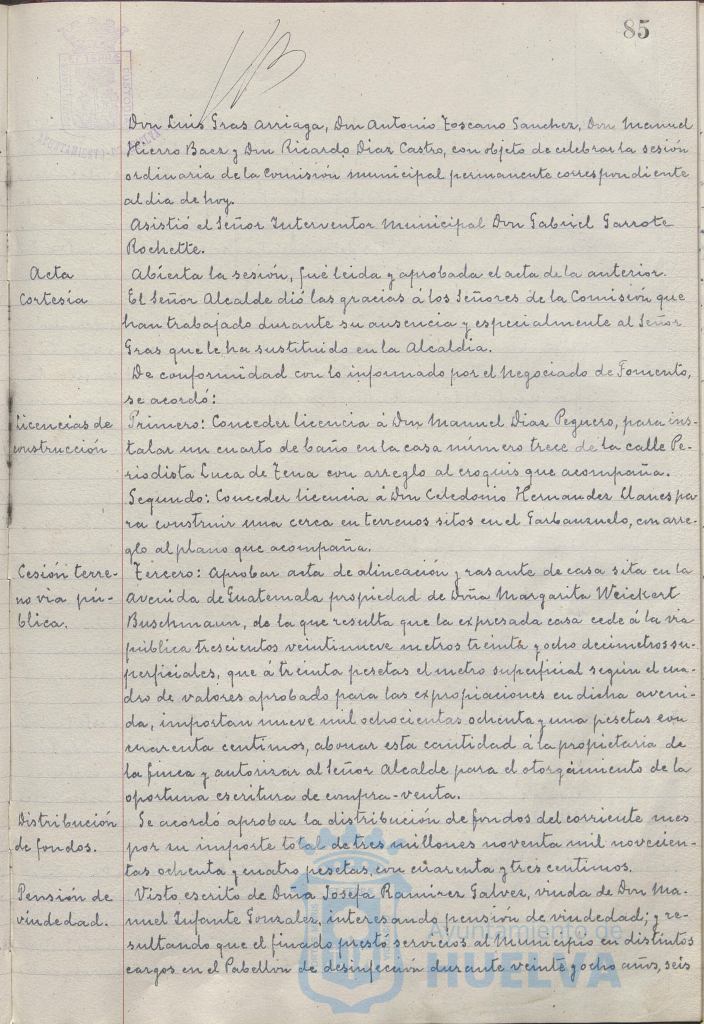 85
Don Luis Gras Arriaga, Don Antonio Toscano Sanchez, Don Manuel
Hierro Baez y Don Ricardo Diaz Castro, con objeto de celebrar la sesión
ordinaria de la Comisión municipal permanente correspondiente
al dia de hoy.
Asistió el Señor Interventor Municipal Don Gabriel Garrote
Rochette.
Acta
Abierta la sesión, fué leida y aprobada el acta de la anterior.
Cortesía
El Señor Alcalde dió las gracias á los Señores de la Comisión que
han trabajado durante su ausencia y especialmente al Señor
Gras que le ha sustituido en la Alcaldia.
De conformidad con lo informado por el Negociado de Fomento,
se acordó:
Licencias de
construcción
Primero: Conceder licencia á Don Manuel Diaz Peguero, para ins-
talar un cuarto de baño en la casa número trece de la calle Pe-
riodista Luca de Tena con arreglo al croquis que acompaña.
Segundo: Conceder licencia á Don Celedonio Hernandez Llanes pa
ra construir una cerca en terrenos sitos en el Garbanzuelo, con arre-
glo al plano que acompaña.
Cesión terre-
no via pú-
blica.
Tercero: Aprobar acta de alineación y rasante de casa sita en la
Avenida de Guatemala propiedad de Doña Margarita Weickert
Buschmann, de la que resulta que la expresada casa cede á la via
pública trescientos veintinueve metros treinta y ocho decimetros su-
perficiales, que á treinta pesetas el metro superficial según el cua-
dro de valores aprobado para las expropiaciones en dicha aveni-
da, importan nueve mil ochocientas ochenta y una pesetas con
cuarenta centimos, abonar esta cantidad á la propietaria de
la finca y autorizar al Señor Alcalde para el otorgamiento de la
oportuna escritura de compra-venta.
Distribución
de fondos.
Se acordó aprobar la distribución de fondos del corriente mes
por su importe total de tres millones noventa mil novecien-
tas ochenta y cuatro pesetas, con cuarenta y tres centimos.
Pensión de
viudedad.
Visto escrito de Doña Josefa Ramirez Galvez, viuda de Don Ma-
nuel Infante Gonzalez, interesando pensión de viudedad; y re-
sultando que el finado prestó servicios al Municipio en distintos
cargos en el Pabellón de desinfección durante veinte y ocho años, seis
Ayuntamiento de
HUELVA